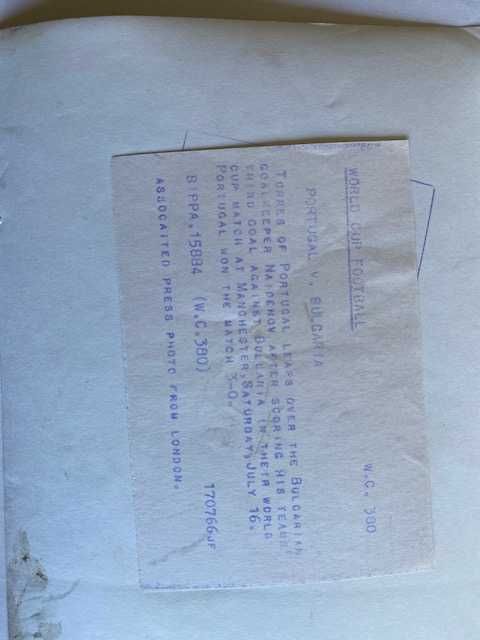 W.C. 380
WORLD CUP FOOTBALL
PORTUGAL V. BULGARIA
TORRES OF PORTUGAL LEAPS OVER THE BULGARIAN
GOALKEEPER NAIDENOV AFTER SCORING HIS TEAMS
THIRD GOAL AGAINST BULGARIA IN THEIR WORLD
CUP MATCH AT MANCHESTER, SATURDAY, JULY 16.
PORTUGAL WON THE MATCH 3-0.
BIPPA.15884 (W.C.380) 170766JF
ASSOCAITED PRESS PHOTO FROM LONDON.